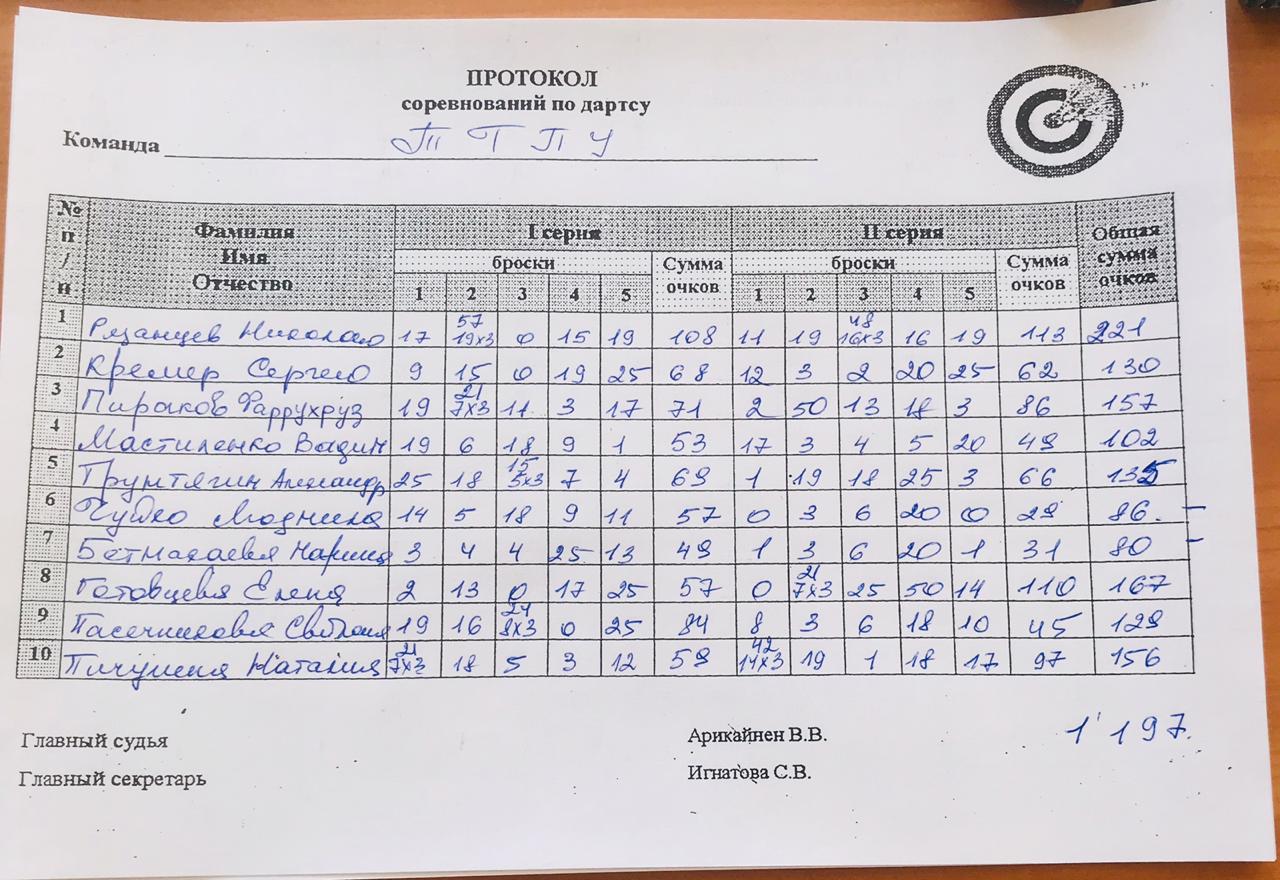 ПРОТОКОЛ
соревнований по дартсу
Команда ТГПУ
№ п / п Фамилия Имя Отчество I серия II серия Общая сумма очков
броски Сумма очков броски Сумма очков
1 2 3 4 5 1 2 3 4 5
1 Рязанцев Николай 17 57 19х3 0 15 19 108 11 19 48 16х3 16 19 113 221
2 Кремер Сергей 9 15 0 19 25 68 12 3 2 20 25 62 130
3 Пираков Фаррухруз 19 21 7х3 11 3 17 71 2 50 13 18 3 86 157
4 Мастиленко Вадим 19 6 18 9 1 53 17 3 4 5 20 49 102
5 Прунтягин Александр 25 18 15 5х3 7 4 69 1 19 18 25 3 66 135
6 Чубко Людмила 14 5 18 9 11 57 0 3 6 20 0 29 86. –
7 Бетмакаева Марина 3 4 4 25 13 49 1 3 6 20 1 31 80 –
8 Готовцева Елена 2 13 0 17 25 57 0 21 7х3 25 50 14 110 167
9 Пасечникова Светлана 19 16 24 8х3 0 25 84 8 3 6 18 10 45 129
10 Пичугина Наталия 21 7х3 18 5 3 12 59 42 14х3 19 1 18 17 97 156
Главный судья Арикайнен В.В. 1'197.
Главный секретарь Игнатова С.В.